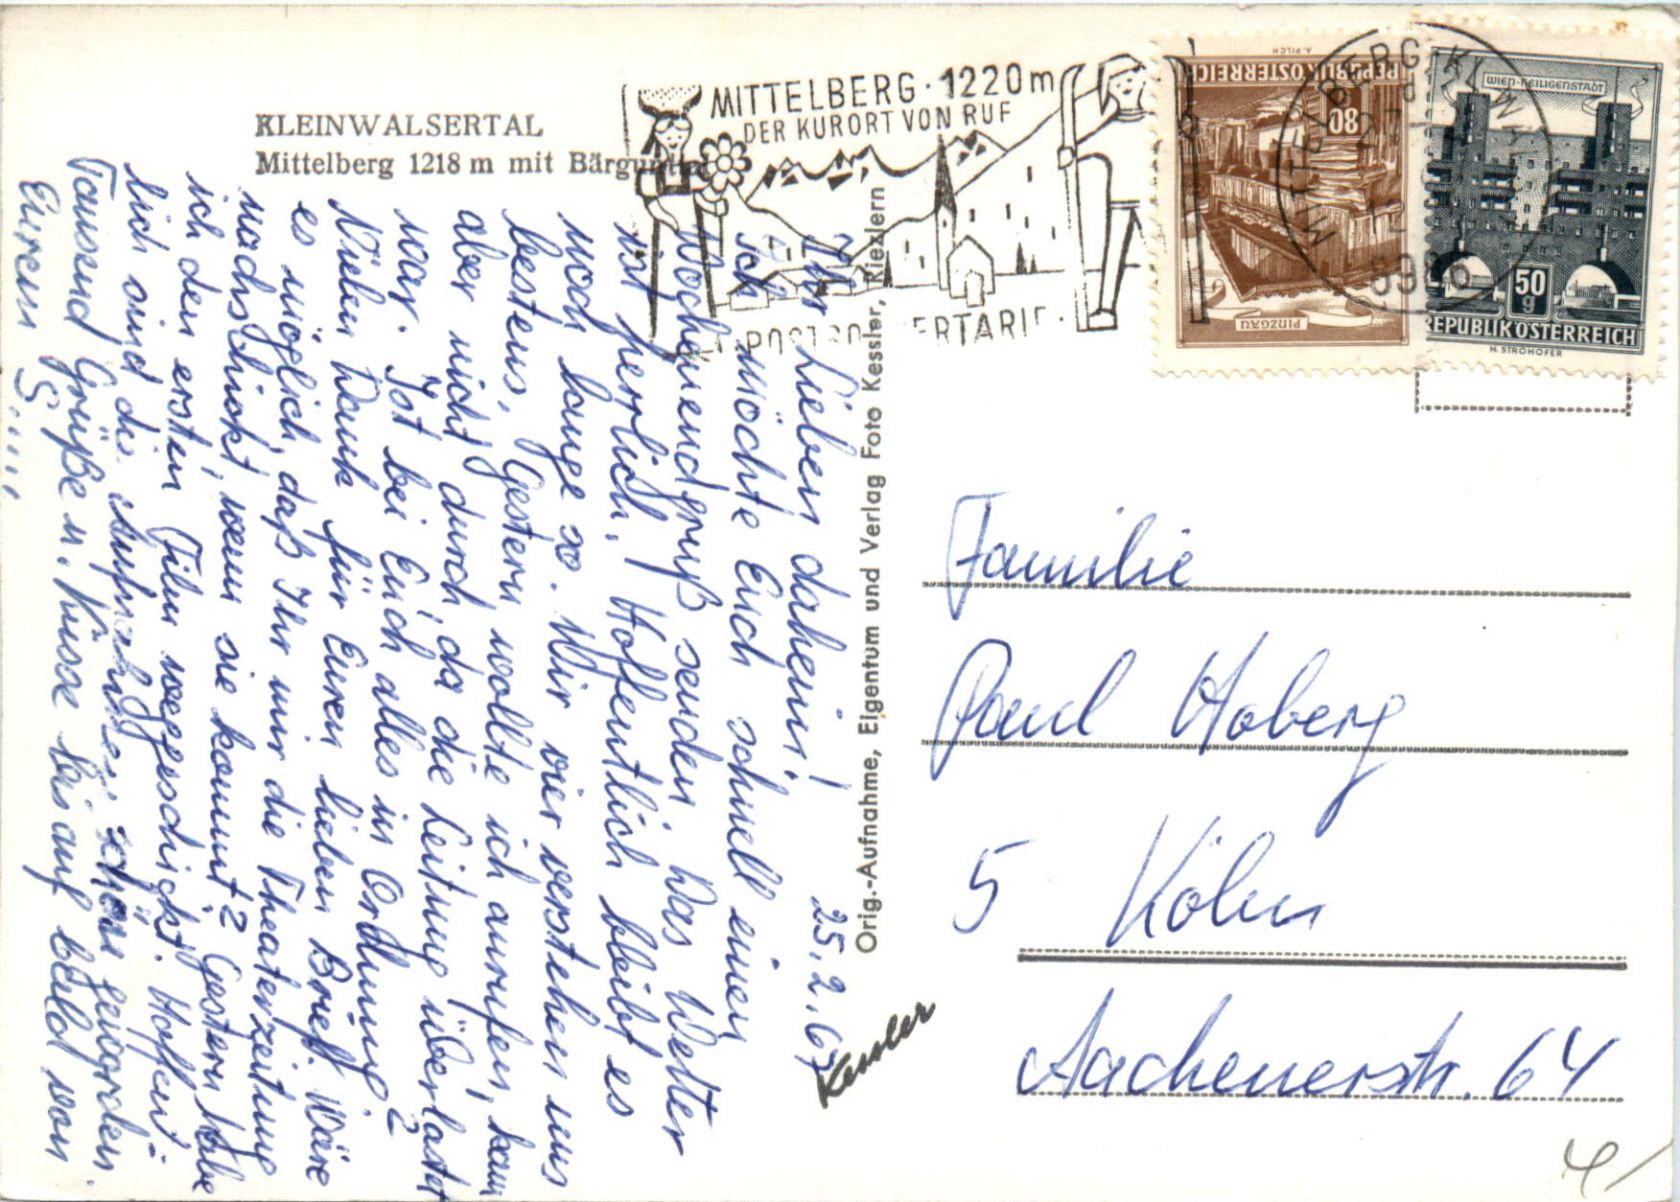 KLEINWALSERTAL
Mittelberg 1218 m mit
MITTELBERG · 1220 m
DER KURORT VON RUF
REPUBLIK ÖSTERREICH
80
PINZGAU
A. PILCH
WIEN-HEILIGENSTADT
50
g
REPUBLIK ÖSTERREICH
H. STROHOFER
25. 2. 67
Ihr Lieben daheim!
Ich möchte Euch schnell einen
Wochenendgruß senden. Das Wetter
ist herrlich. Hoffentlich bleibt es
noch lange so. Wir vier verstehen uns
bestens. Gestern wollte ich anrufen, kam
aber nicht durch, da die Leitung überlastet
war. Ist bei Euch alles in Ordnung?
Vielen Dank für Euren lieben Brief. Wäre
es möglich, daß Ihr mir die Theaterzeitung
nachschickt, wenn sie kommt? Gestern habe
ich den ersten Film weggeschickt. Hoffent-
lich sind die Aufnahmen schön geworden.
Tausend Grüße u. Küsse bis auf bald von
Eurem S.....
Orig.-Aufnahme, Eigentum und Verlag Foto Kessler, Riezlern
Kessler
Familie
Paul Hoberg
5 Köln
Aachenerstr. 64
4/